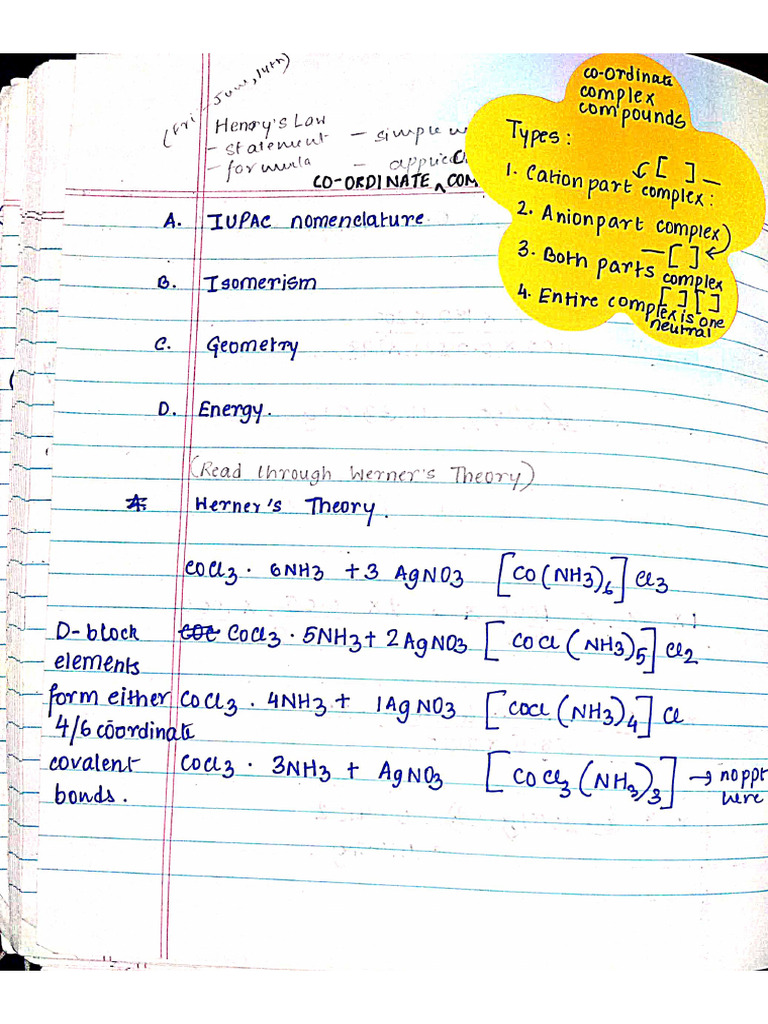 (Fri - June, 14th)
Henry's Law
- statement - simple
- formula -
CO-ORDINATE COM
co-ordinate
complex
compounds
Types:
1. Cation part complex: [ ] —
2. Anion part complex)
— [ ]
3. Both parts complex
[ ] [ ]
4. Entire complex is one
neutral
A. IUPAC nomenclature
B. Isomerism
C. Geometry
D. Energy.
(Read through Werner's Theory)
Herner's Theory.
COCl3 · 6NH3 + 3 AgNO3 [CO(NH3)6]Cl3
D-block
elements
form either
4/6 coordinate
covalent
bonds.
COCl3 · 5NH3 + 2AgNO3 [COCl(NH3)5]Cl2
COCl3 · 4NH3 + 1AgNO3 [COCl(NH3)4]Cl
COCl3 · 3NH3 + AgNO3 [COCl3(NH3)3] → no ppt
here